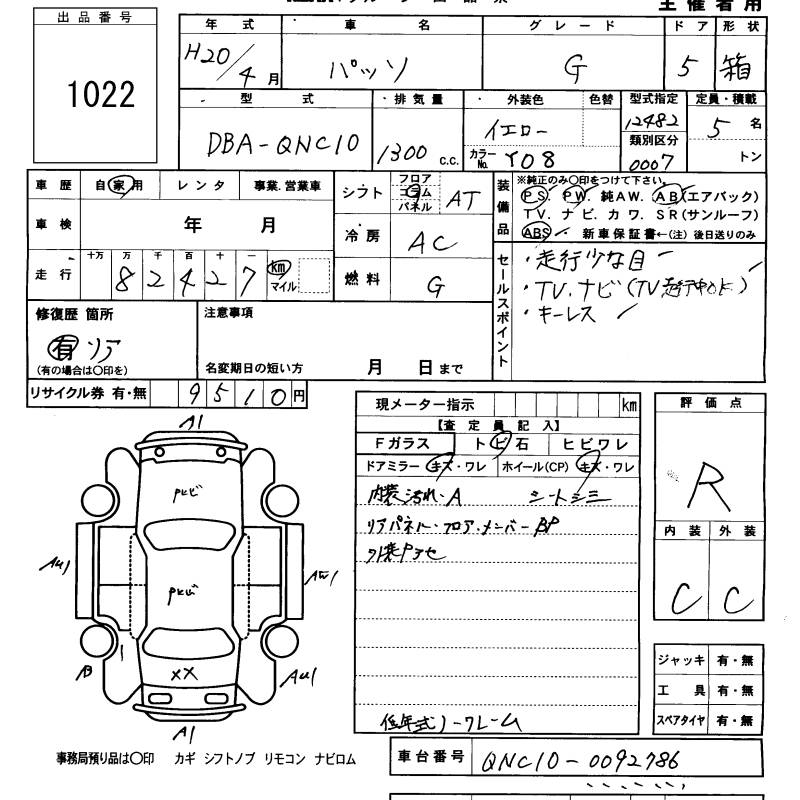 主催者用
出品番号
1022
年式 車名 グレード ドア 形状
H20/4月 パッソ G 5 箱
型式 排気量 外装色 色替 型式指定 定員・積載
DBA-QNC10 1300 c.c. イエロー 12482 5名
カラーNo. Y08 類別区分 0007 トン
車歴 自家用 レンタ 事業.営業車
シフト フロア コラム パネル AT
装備品 ※純正のみ〇印をつけて下さい。
PS. PW. 純AW. AB(エアバック)
TV. ナビ. カワ. SR(サンルーフ)
ABS 新車保証書←(注) 後日送りのみ
車検 年 月
冷房 AC
走行 十万 万 千 百 十 一
8 2 4 2 7 km マイル
燃料 G
セールスポイント
・走行少な目
・TV.ナビ(TV走行中OK)
・キーレス
修復歴 箇所
有 リア
(有の場合は〇印を)
注意事項
名変期日の短い方 月 日まで
リサイクル券 有・無 9510円
現メーター指示 km
【査定員記入】
Fガラス トビ石 ヒビワレ
ドアミラー キズ・ワレ ホイール(CP) キズ・ワレ
内装汚れ・A シートシミ
リアパネル・フロア・メンバーBP
外装Pアセ
低年式ノークレーム
評価点
R
内装 外装
C C
A1
Pヒビ
AU1
AW1
Pヒビ
B
1
XX
AU1
A1
ジャッキ 有・無
工具 有・無
スペアタイヤ 有・無
事務局預り品は〇印 カギ シフトノブ リモコン ナビロム
車台番号 QNC10-0092786